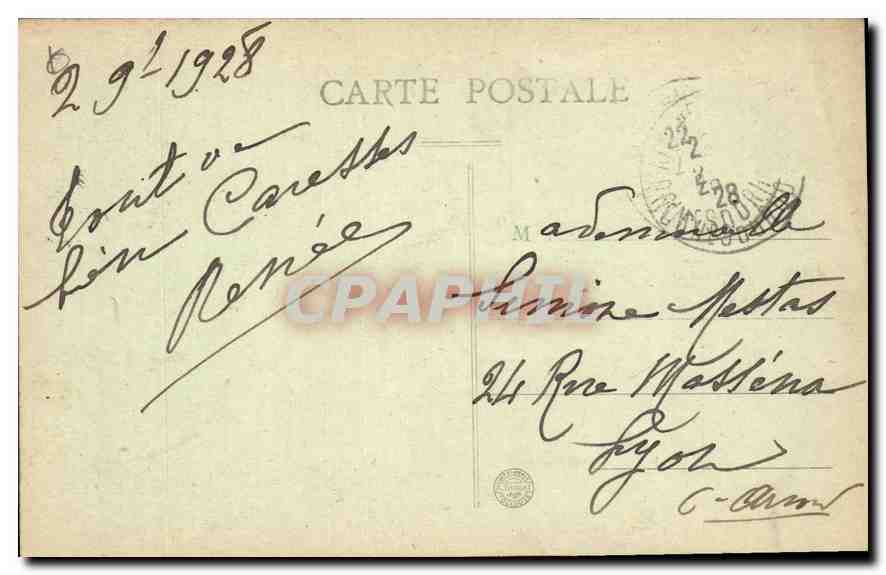 2 9b 1928
CARTE POSTALE
Tout va
bien Caresses
Renée
Mademoiselle
Simone Mestas
24 Rue Masséna
Lyon
22
2
28
CPAPHIL